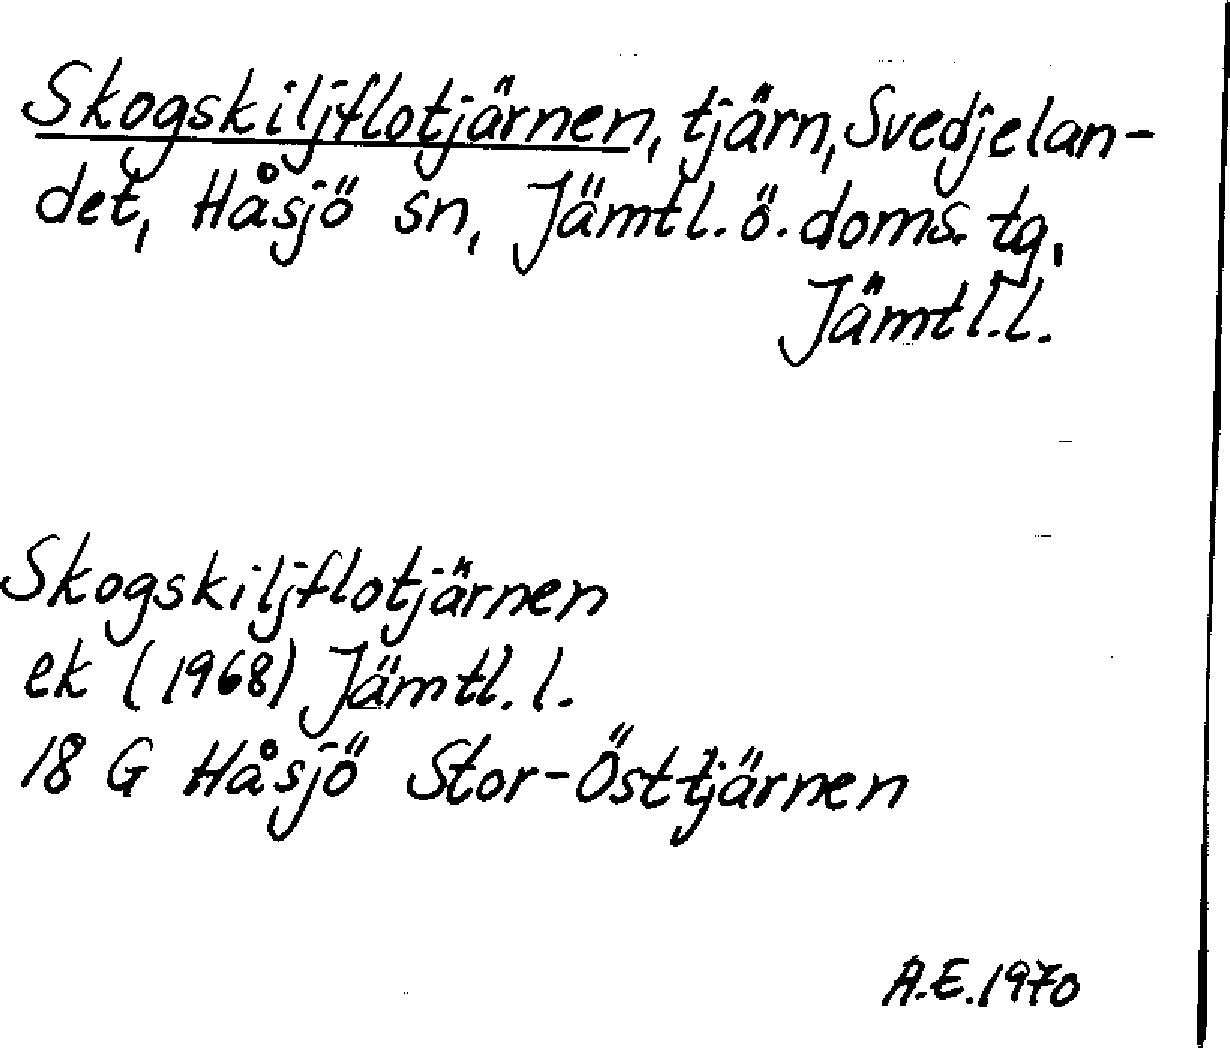 Skogskiljflotjärnen, tjärn, Svedjelan-
det, Håsjö sn, Jämtl. ö. doms. tg,
Jämtl. l.
Skogskiljflotjärnen
ek (1968) Jämtl. l.
18 G Håsjö Stor-Östtjärnen
A.E. 1970